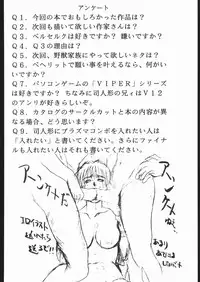 アンケート
Q1．今回の本でおもしろかった作品は？
Q2．次回も描いて欲しい作家さんは？
Q3．ベルセルクは好きですか？ 嫌いですか？
Q4．Q3の理由は？
Q5．次回、野獣家族にやって欲しいネタは？
Q6．ベヘリットで願い事を叶えるなら、何がい
いですか？
Q7．パソコンゲームの「VIPER」シリーズ
は好きですか？ ちなみに司人形の兄ィはV12
のアンリが好きらしいです。
Q8．カタログのサークルカットと本の内容が異
なる場合、どう思います？
Q9．司人形にプラズマコンボを入れたい人は
「入れたい」と書いてください。さらにファイナ
ルも入れたい人はそれも書いてください。
アンケートだ
アンケ